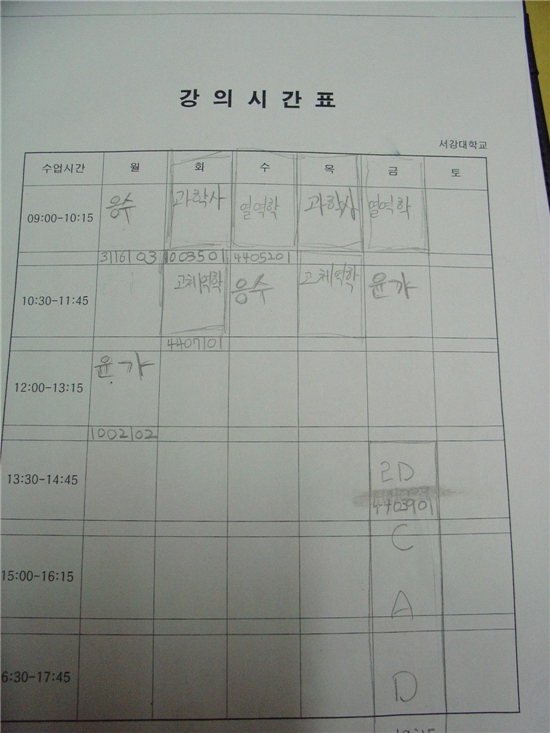 강 의 시 간 표
서강대학교
수업시간 월 화 수 목 금 토
09:00-10:15 응수 과학사 열역학 과학사 열역학
3116103 1003501 4405201
10:30-11:45 고체역학 응수 고체역학 윤가
4407101
12:00-13:15 윤가
1002102
13:30-14:45 2D
4403901
C
15:00-16:15
A
6:30-17:45 D